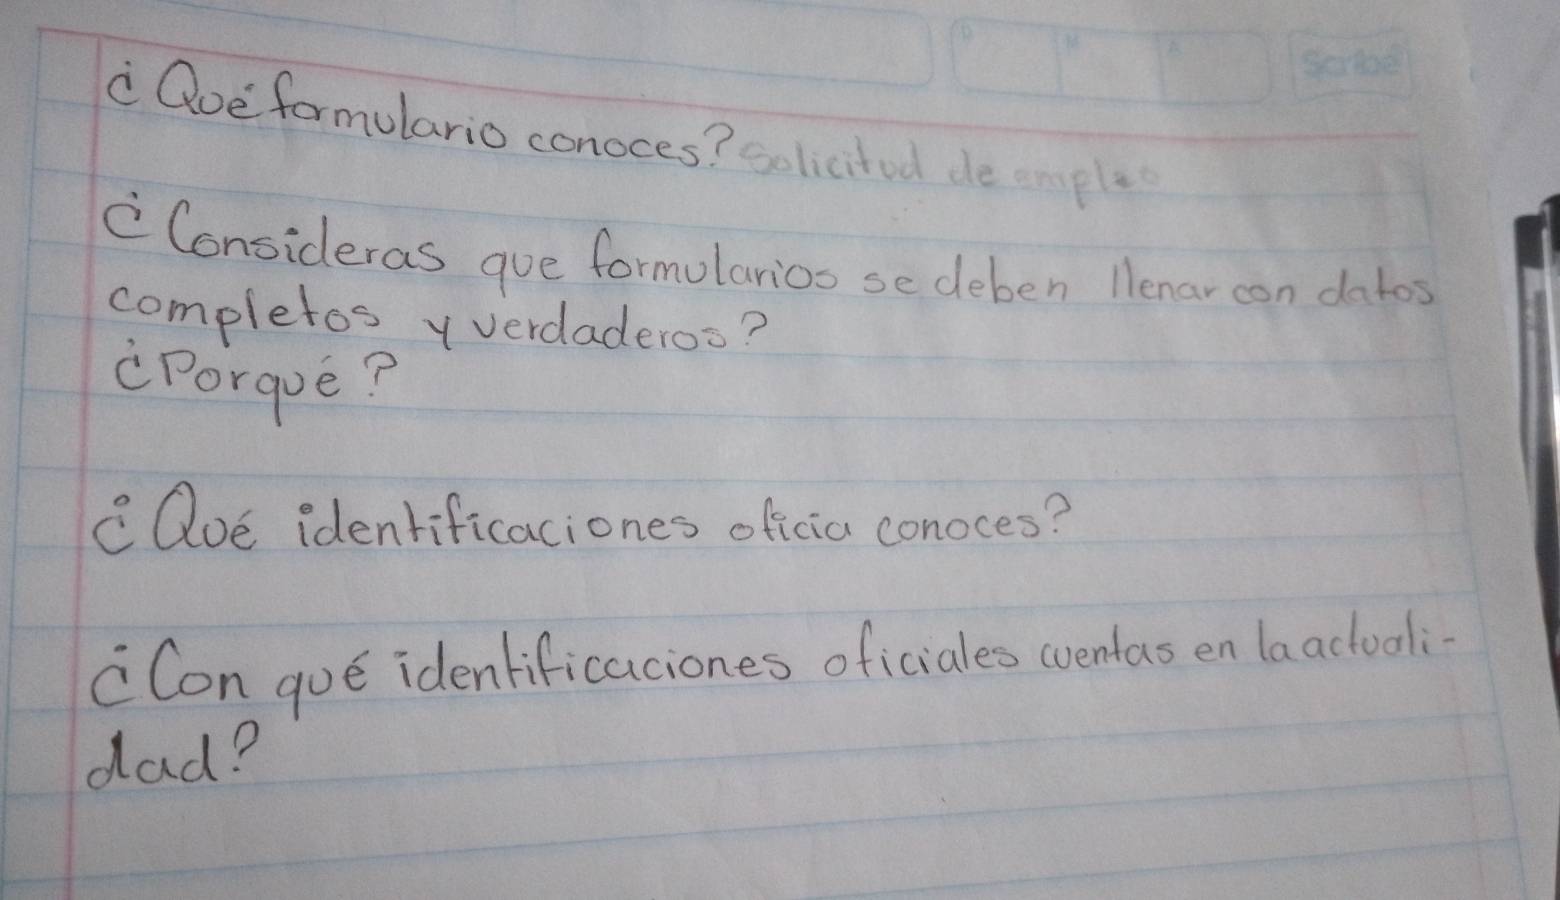 D M A Scribe
¿Qué formulario conoces? Solicitud de empleo
¿Consideras que formularios se deben llenar con datos
completos y verdaderos?
¿Porqué?
¿Qué identificaciones oficia conoces?
¿Con qué identificaciones oficiales cuentas en la actuali-
dad?